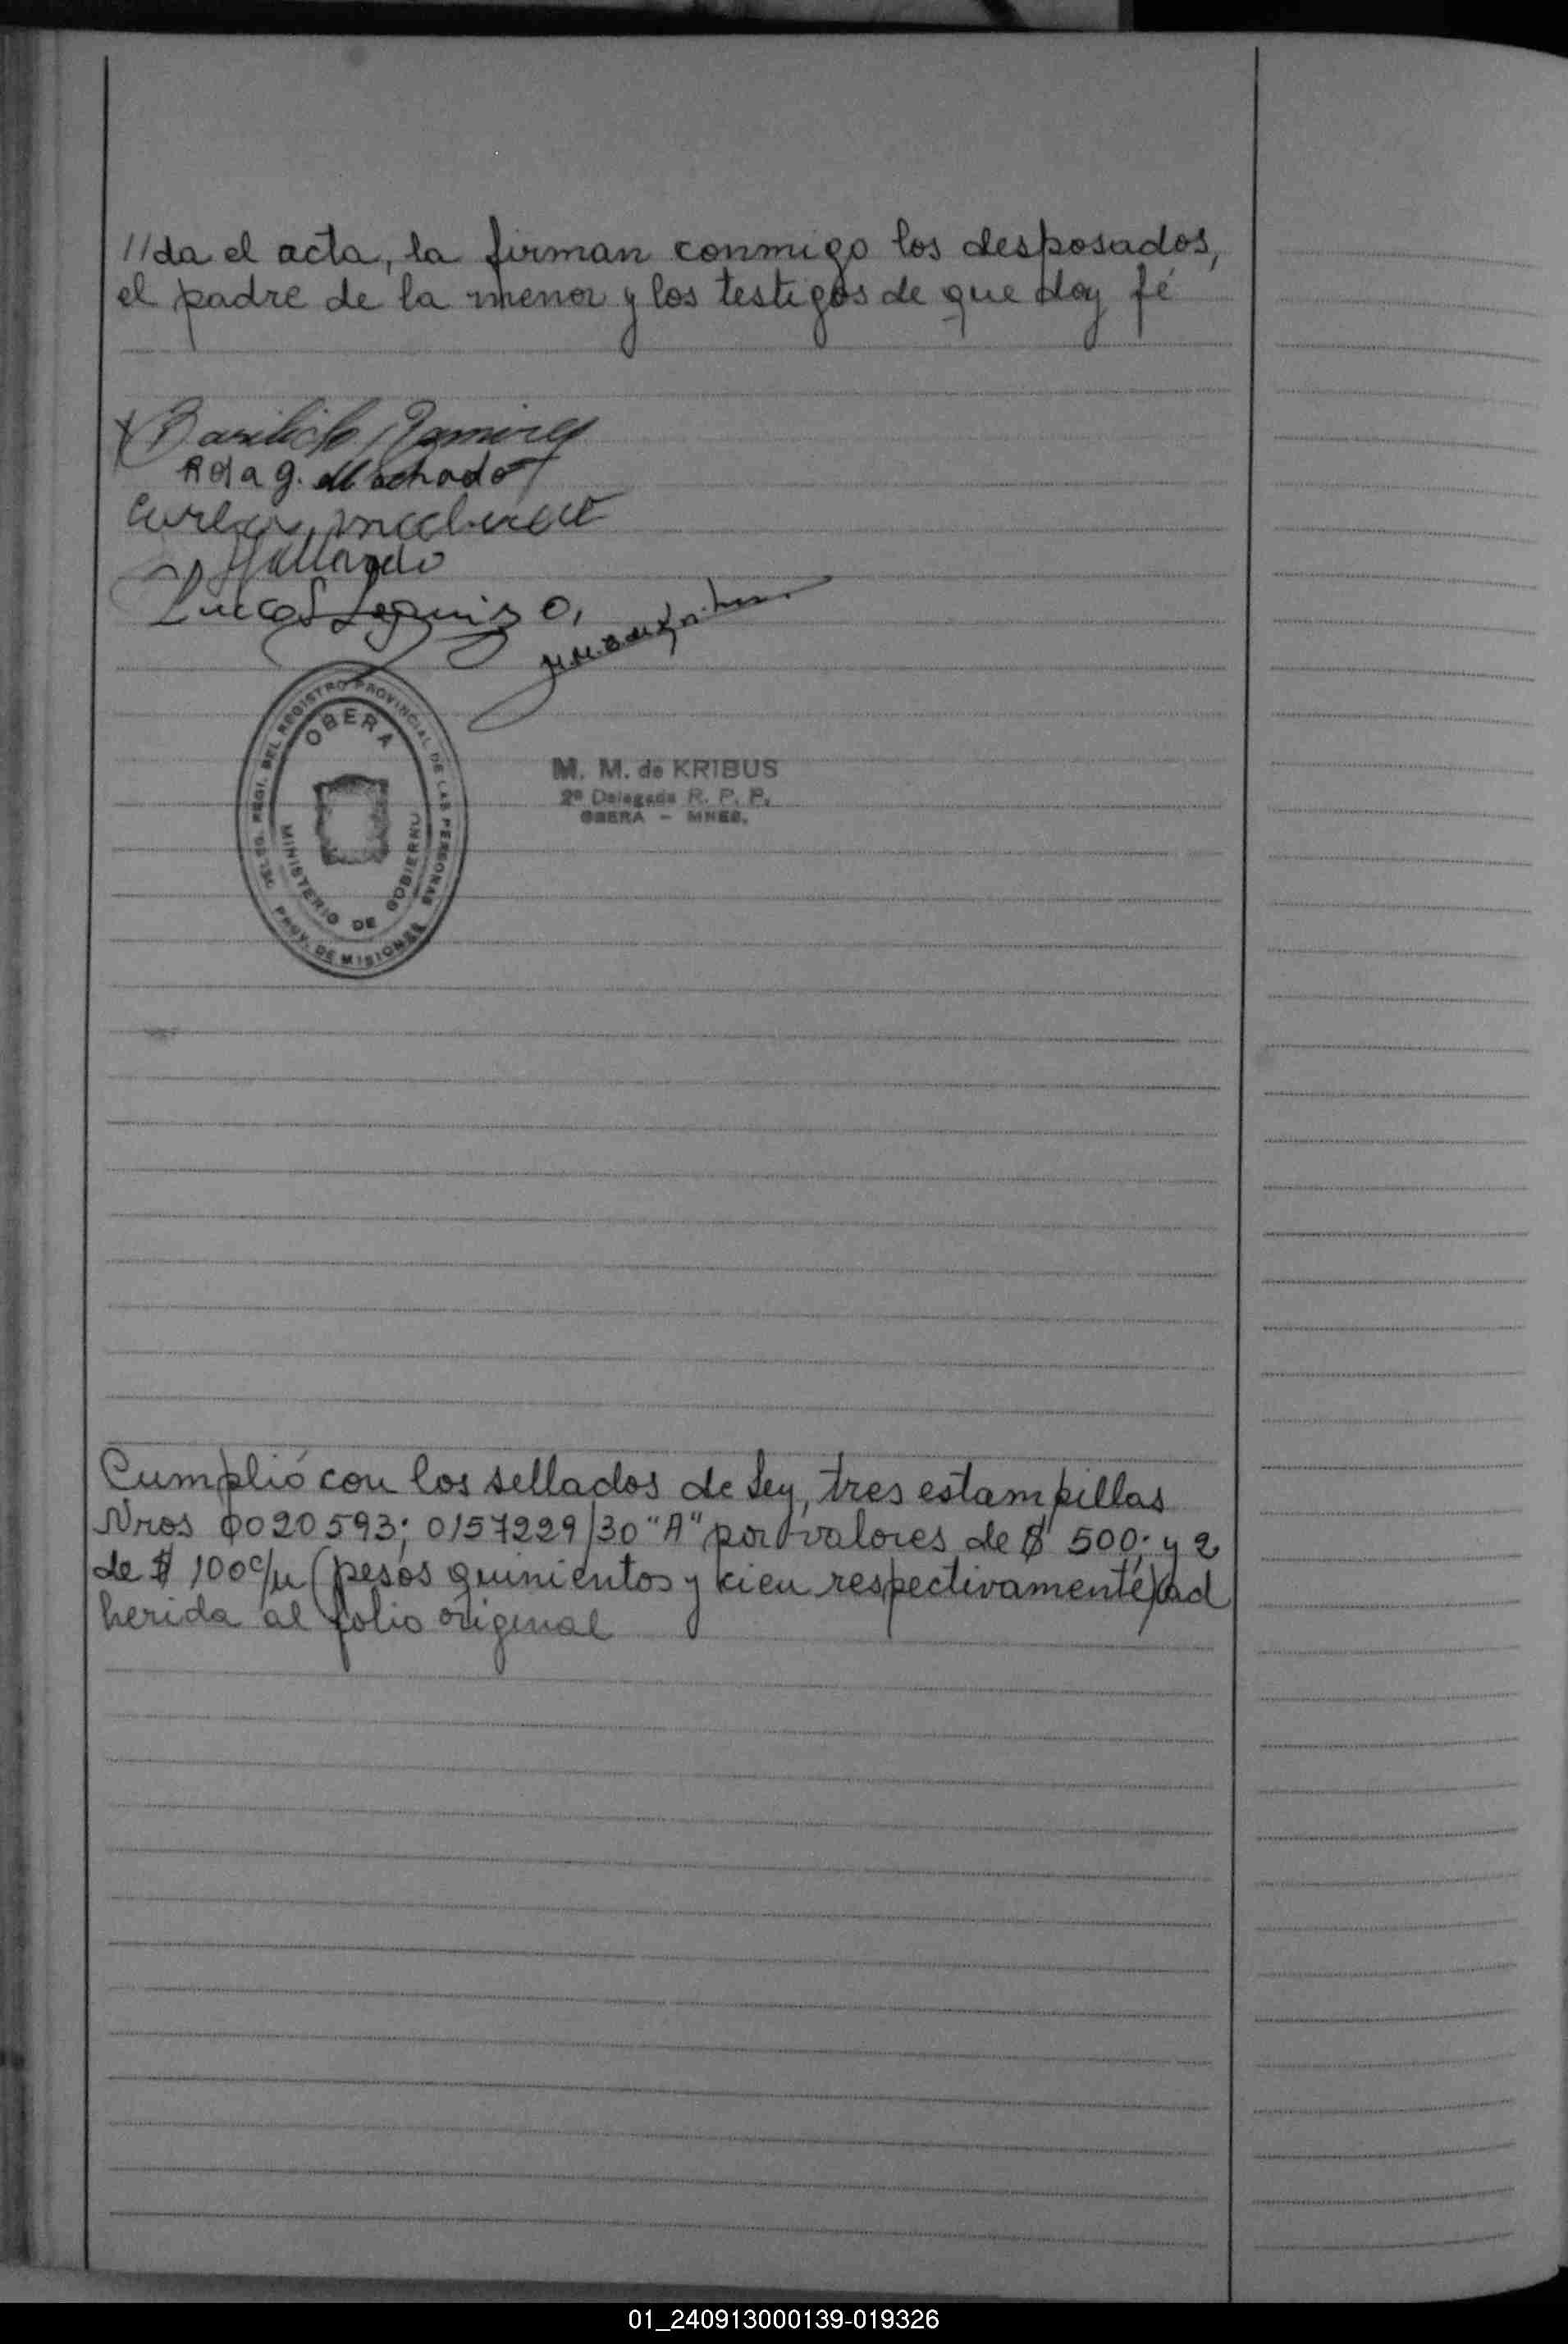 //da el acta, la firman conmigo los desposados,
el padre de la menor y los testigos de que doy fé
Ramirez
Rosa g. Machado
Carlos
Gallardo
Lucas Leguiza,
OBERA
DEL REGISTRO PROVINCIAL DE LAS PERSONAS
MINISTERIO DE GOBIERNO
PROV. DE MISIONES
M. M. de KRIBUS
2ª Delegada R. P. P.
OBERA - MNES.
Cumplió con los sellados de Ley, tres estampillas
Nros 0020593; 0157229/30 "A" por valores de $ 500; y 2
de $ 100 c/u (pesos quinientos y cien respectivamente) ad
herida al folio original
01_240913000139-019326